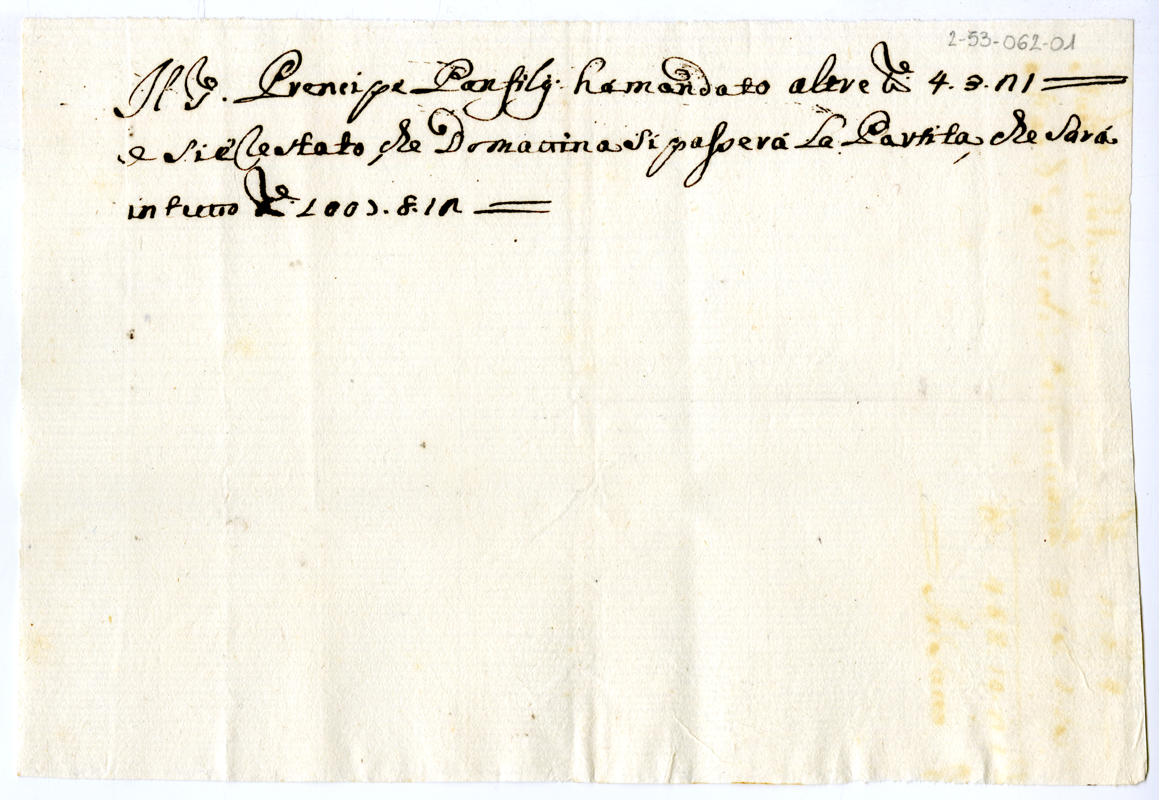 2-53-062-01
Il S. Prencipe Panfilij ha mandato altre 4.
e si è stato, che Domattina si passerà La Partita, che sarà
in tutto